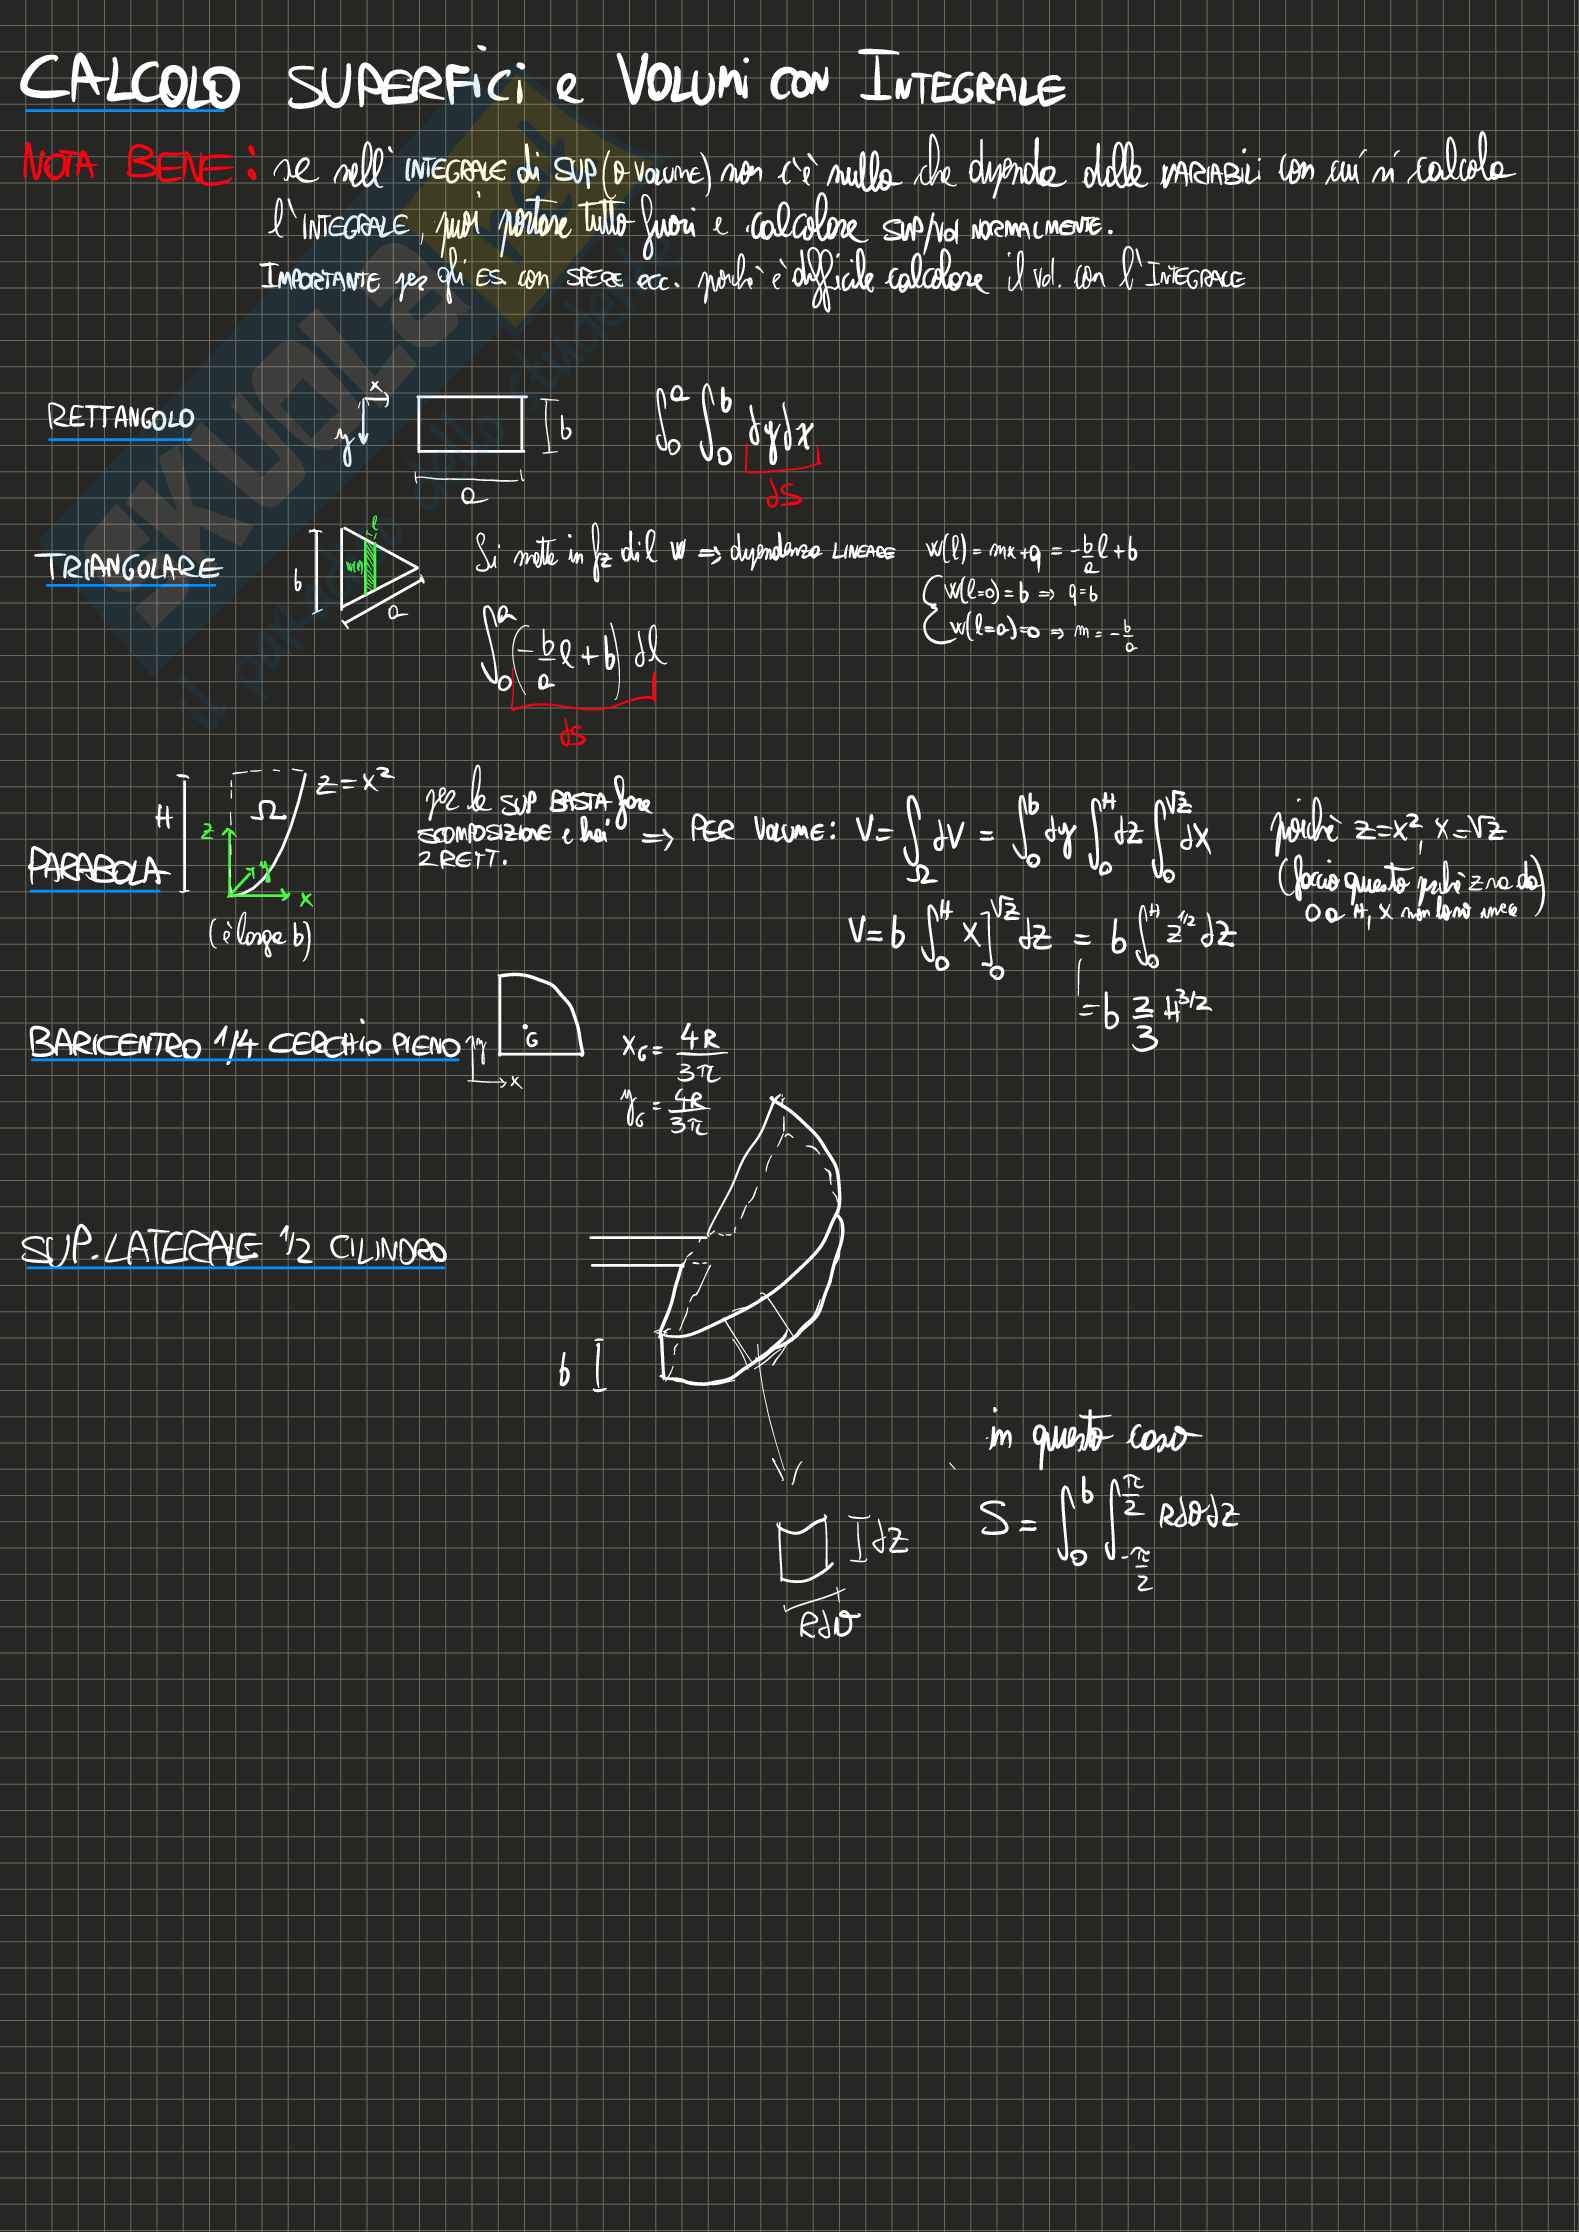 CALCOLO SUPERFICI e VOLUMI CON INTEGRALE
NOTA BENE: se nell'INTEGRALE di SUP (O VOLUME) non c'è nulla che dipenda dalle VARIABILI con cui si calcola
l'INTEGRALE, puoi portare tutto fuori e calcolare SUP/VOL NORMALMENTE.
IMPORTANTE per gli ES. con SFERE ecc. poichè è difficile calcolare il vol. con l'INTEGRALE
SKUOLA.net
RETTANGOLO x y a b ∫₀ᵃ ∫₀ᵇ dy dx
dS
TRIANGOLARE b l w(l) a Si mette in fz di l w ⇒ dipendenza LINEARE w(l) = mx+q = -b/a l + b
w(l=0) = b ⇒ q=b
w(l=a)=0 ⇒ m = -b/a
∫₀ᵃ (-b/a l + b) dl
dS
PARABOLA H z Ω y x z = x²
(è larga b)
per le SUP BASTA fare
SCOMPOSIZIONE e hai ⇒ PER VOLUME: V = ∫_Ω dV = ∫₀ᵇ dy ∫₀ᴴ dz ∫₀^√z dx poichè z = x², x = √z
2 RETT.
(faccio questo perchè z va da
0 a H, x non lo so invece)
V = b ∫₀ᴴ x]₀^√z dz = b ∫₀ᴴ z^1/2 dz
= b 2/3 H^3/2
BARICENTRO 1/4 CERCHIO PIENO y x G x_G = 4R/3π
y_G = 4R/3π
SUP. LATERALE 1/2 CILINDRO
b
in questo caso
S = ∫₀ᵇ ∫_{-π/2}^{π/2} R dθ dz
dz
R dθ